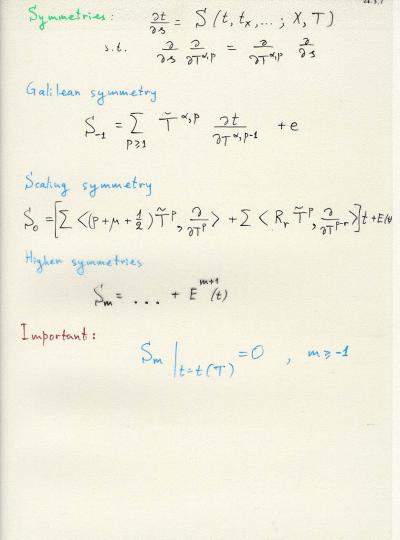 Symmetries: ∂t/∂s = S(t, t_x, ... ; X, T)
s.t. ∂/∂s ∂/∂T^{α,p} = ∂/∂T^{α,p} ∂/∂s
Galilean symmetry
S_{-1} = ∑_{p≥1} T̃^{α,p} ∂t/∂T^{α,p-1} + e
Scaling symmetry
S_0 = [∑ <(p+μ+1/2) T̃^p, ∂/∂T^p> + ∑ <R_r T̃^p, ∂/∂T^{p-r}>] t + E(
Higher symmetries
S_m = ... + E^{m+1}(t)
Important:
S_m |_{t=t(T)} = 0 , m ≥ -1